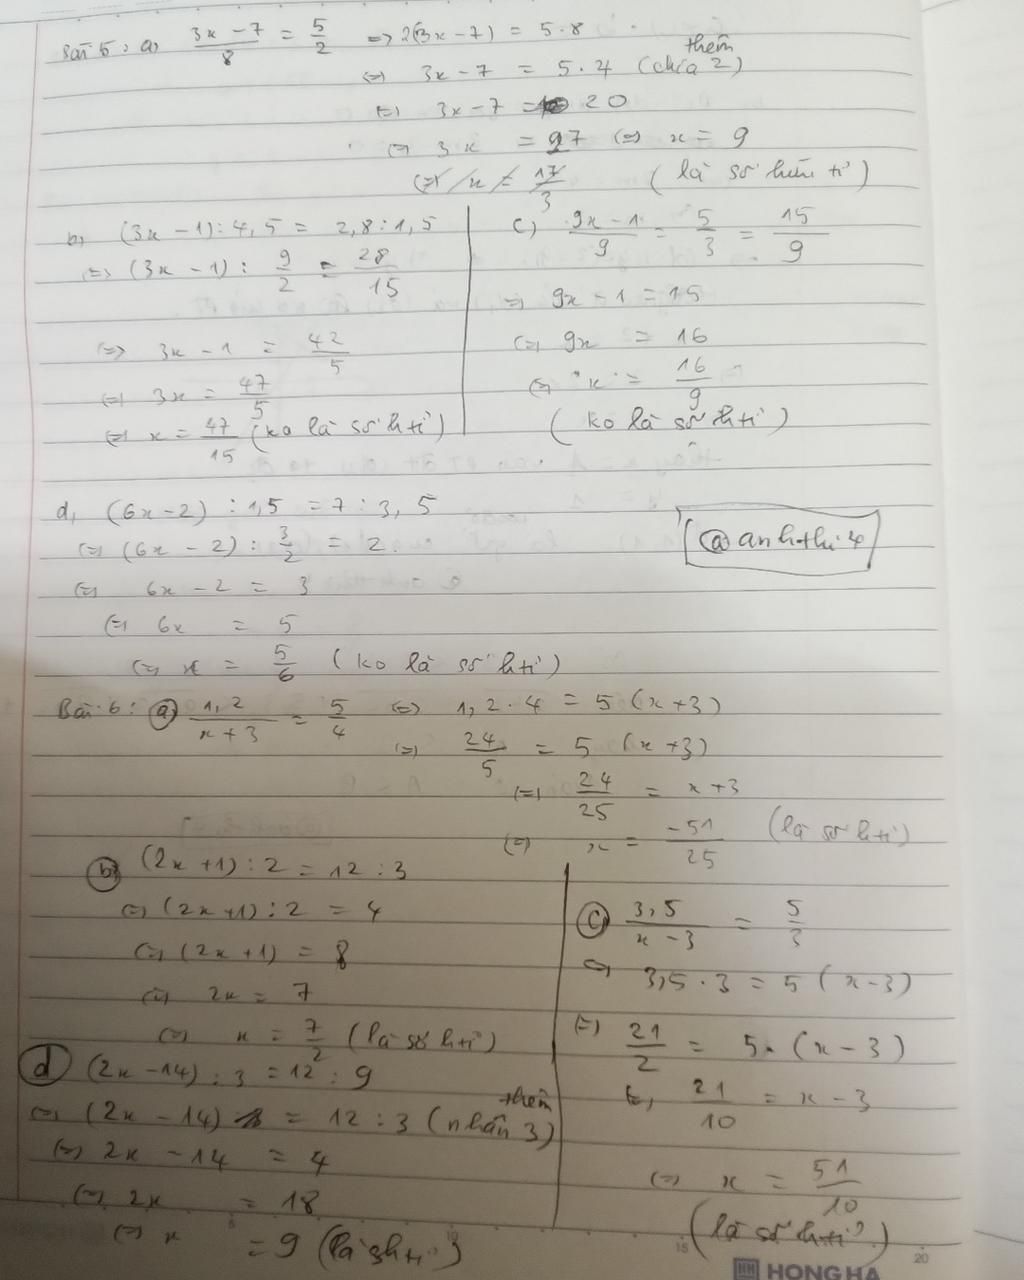 Bài 5: a) (3x-7)/8 = 5/2 => 2(3x-7) = 5.8
thêm
<=> 3x-7 = 5.4 (chia 2)
<=> 3x-7 = 20
<=> 3x = 27 <=> x = 9
<=> x = 17/3 (là số hữu tỉ)
b, (3x-1):4,5 = 2,8:1,5
<=> (3x-1): 9/2 = 28/15
<=> 3x-1 = 42/5
<=> 3x = 47/5
<=> x = 47/15 (ko là số h tỉ)
c) (9x-1)/9 = 5/3 = 15/9
=> 9x-1 = 15
<=> 9x = 16
<=> x = 16/9
(ko là số h tỉ)
d, (6x-2) : 1,5 = 7 : 3,5
<=> (6x-2) : 3/2 = 2
<=> 6x-2 = 3
<=> 6x = 5
<=> x = 5/6 (ko là số h tỉ)
@anhthu4
Bài 6: a) 1,2/(x+3) = 5/4 <=> 1,2.4 = 5(x+3)
<=> 24/5 = 5(x+3)
<=> 24/25 = x+3
<=> x = -51/25 (là số h tỉ)
b) (2x+1):2 = 12:3
<=> (2x+1):2 = 4
<=> (2x+1) = 8
<=> 2x = 7
<=> x = 7/2 (là số h tỉ)
c) 3,5/(x-3) = 5/3
<=> 3,5.3 = 5(x-3)
<=> 21/2 = 5.(x-3)
<=> 21/10 = x-3
<=> x = 51/10
(là số h tỉ)
d) (2x-14):3 = 12:9
thêm
<=> (2x-14) = 12:3 (nhân 3)
<=> 2x-14 = 4
<=> 2x = 18
<=> x = 9 (là sh tỉ)
5 10 15 20
HH HONG HA